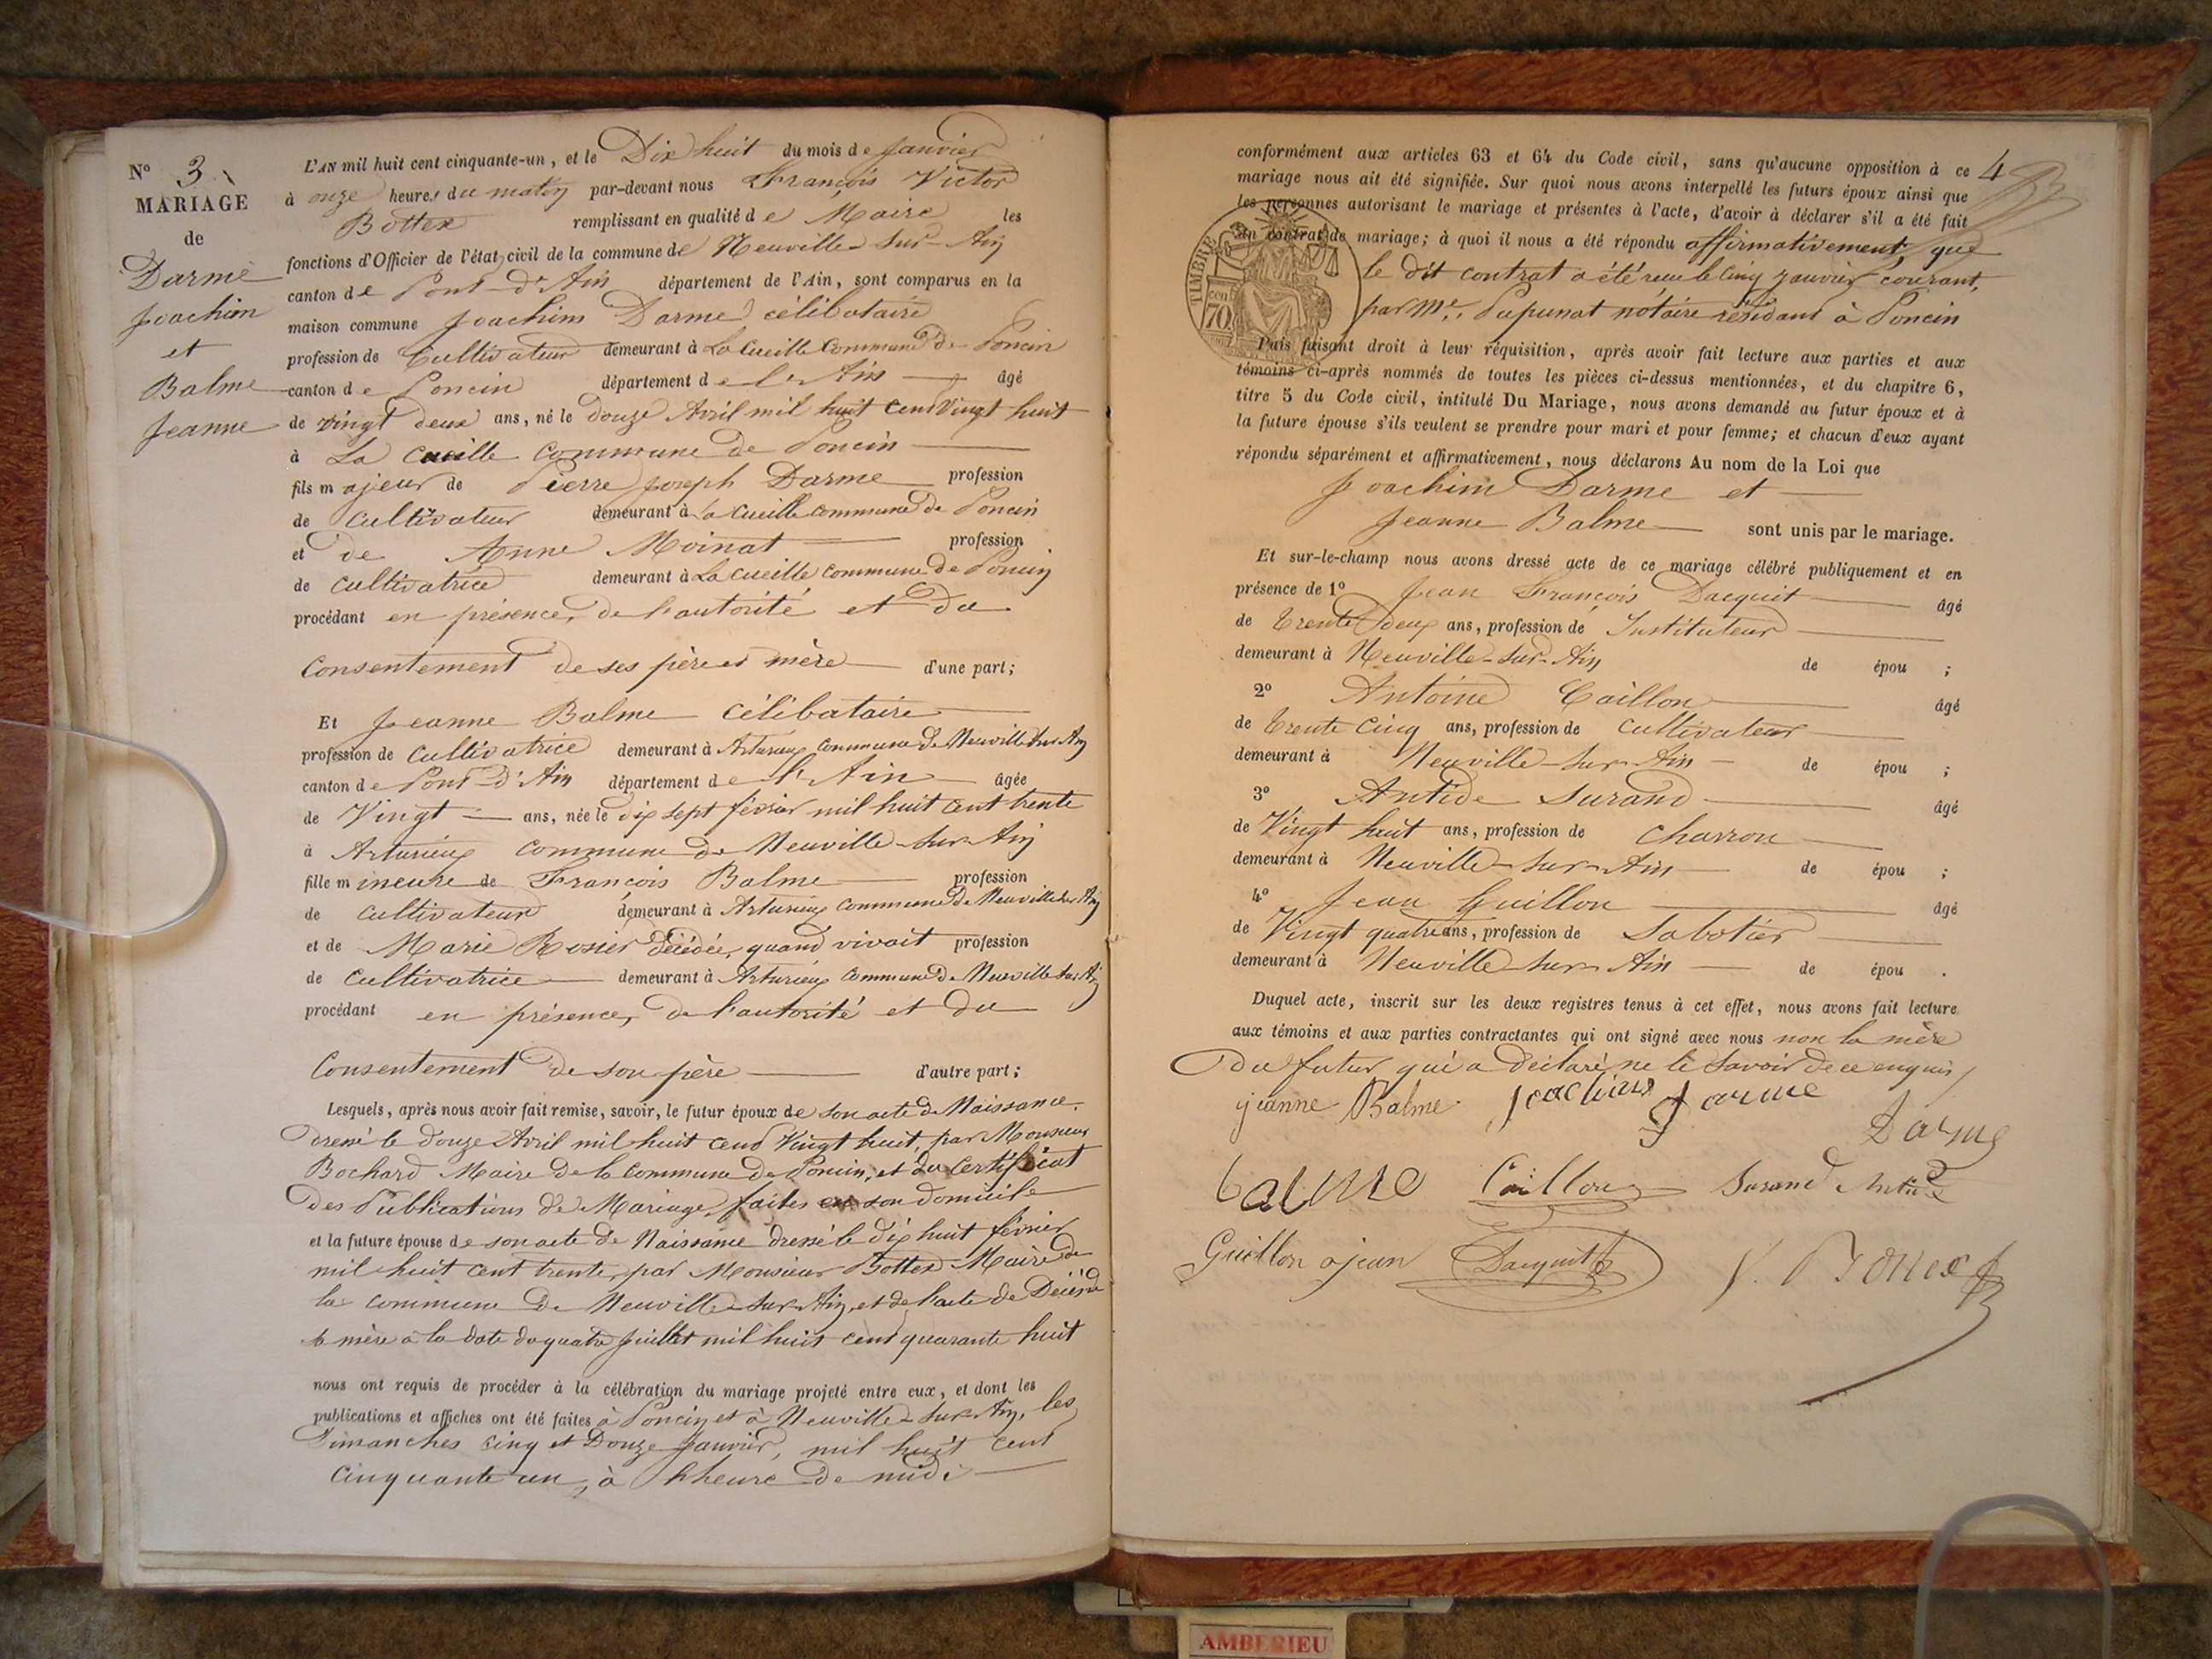 N.º 3
MARIAGE
de
Darme
Joachim
et
Balme
Jeanne
L'AN mil huit cent cinquante-un, et le Dix huit du mois de Janvier
à onze heures du matin par-devant nous François Victor
Bottex remplissant en qualité de Maire les
fonctions d'Officier de l'état civil de la commune de Neuville-sur-Ain
canton de Pont-d'Ain département de l'Ain, sont comparus en la
maison commune Joachim Darme célibataire
profession de Cultivateur demeurant à La Cueille Commune de Poncin
canton de Poncin département de l'Ain âgé
de vingt deux ans, né le douze Avril mil huit cent vingt huit
à La Cueille Commune de Poncin
fils majeur de Pierre Joseph Darme profession
de Cultivateur demeurant à La Cueille commune de Poncin
et de Anne Moinat profession
de Cultivatrice demeurant à La Cueille Commune de Poncin
procédant en présence, de l'autorité et du
Consentement de ses père et mère d'une part;
Et Jeanne Balme célibataire
profession de Cultivatrice demeurant à Arturieux Commune de Neuville sur Ain
canton de Pont-d'Ain département de l'Ain âgée
de Vingt ans, née le dix sept février mil huit cent trente
à Arturieux Commune de Neuville-sur-Ain
fille mineure de François Balme profession
de Cultivateur demeurant à Arturieux Commune de Neuville sur Ain
et de Marie Rosier décédée, quand vivait profession
de Cultivatrice demeurant à Arturieux Commune de Neuville sur Ain
procédant en présence, de l'autorité et du
Consentement de son père d'autre part;
Lesquels, après nous avoir fait remise, savoir, le futur époux de son acte de Naissance,
dressé le douze Avril mil huit cent vingt huit, par Monsieur
Bochard Maire de la Commune de Poncin, et du Certificat
des Publications de Mariage, faites en son domicile
et la future épouse de son acte de Naissance dressé le dix huit février
mil huit cent trente, par Monsieur Bottex Maire de
la commune de Neuville-sur-Ain, et de l'acte de Décès de
sa mère a la date du quatre juillet mil huit cent quarante huit
nous ont requis de procéder à la célébration du mariage projeté entre eux, et dont les
publications et affiches ont été faites à Poncin et à Neuville-sur-Ain, les
Dimanches cinq et Douze Janvier, mil huit cent
cinquante un, à l'heure de midi
4
conformément aux articles 63 et 64 du Code civil, sans qu'aucune opposition à ce
mariage nous ait été signifiée. Sur quoi nous avons interpellé les futurs époux ainsi que
les personnes autorisant le mariage et présentes à l'acte, d'avoir à déclarer s'il a été fait
un contrat de mariage; à quoi il nous a été répondu affirmativement, que
TIMBRE
70 cent
le dit contrat a été reçu le cinq janvier courant,
par Me. Papunat notaire résidant à Poncin
Puis faisant droit à leur réquisition, après avoir fait lecture aux parties et aux
témoins ci-après nommés de toutes les pièces ci-dessus mentionnées, et du chapitre 6,
titre 5 du Code civil, intitulé Du Mariage, nous avons demandé au futur époux et à
la future épouse s'ils veulent se prendre pour mari et pour femme; et chacun d'eux ayant
répondu séparément et affirmativement, nous déclarons Au nom de la Loi que
Joachim Darme et
Jeanne Balme sont unis par le mariage.
Et sur-le-champ nous avons dressé acte de ce mariage célébré publiquement et en
présence de 1º Jean François Dacquit âgé
de Trente deux ans, profession de Instituteur
demeurant à Neuville-sur-Ain de épou ;
2º Antoine Caillon âgé
de Trente Cinq ans, profession de Cultivateur
demeurant à Neuville-sur-Ain de épou ;
3º Antide Surand âgé
de Vingt huit ans, profession de Charron
demeurant à Neuville-sur-Ain de épou ;
4º Jean Guillon âgé
de Vingt quatre ans, profession de Sabotier
demeurant à Neuville sur Ain de épou .
Duquel acte, inscrit sur les deux registres tenus à cet effet, nous avons fait lecture
aux témoins et aux parties contractantes qui ont signé avec nous non la mère
du futur qui a déclaré ne le savoir de ce enquis
jeanne Balme Joachim Darme
Darme
balme Caillon Surand Antide
Guillon jean Dacquit V. Bottex
AMBERIEU